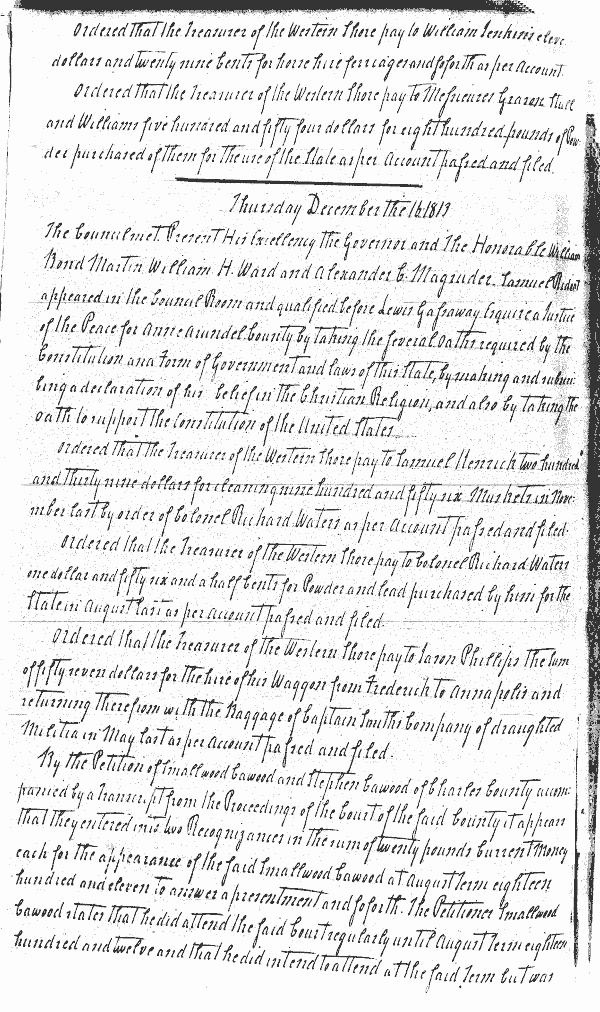 Ordered that the Treasurer of the Western Shore pay to William Jenkins eleve
dollars and twenty nine Cents for horse hire ferriages and so forth as per Account.
Ordered that the Treasurer of the Western Shore pay to Messieures Graron Hull
and Williams five hundred and fifty four dollars for eight hundred pounds of Pow-
der purchased of them for the use of the State as per Account passed and filed.
Thursday December the 16 1813
The Council met. Present His Excellency the Governor and The Honorable William
Bond Martin William H. Ward and Alexander C. Magruder. Samuel
appeared in the Council Room and qualified before Lewis Gassaway Esquire a Justice
of the Peace for Anne Arundel County by taking the several Oaths required by the
Constitution and Form of Government and laws of this State, by making and subscri
bing a declaration of his belief in the Christian Religion, and also by taking the
oath to support the Constitution of the United States
Ordered that the Treasurer of the Western Shore pay to Samuel Henrich two hundred
and thirty nine dollars for cleaning nine hundred and fifty six Muskets in Nove-
mber last by order of Colonel Richard Waters as per Account passed and filed.
Ordered that the Treasurer of the Western Shore pay to Colonel Richard Waters
one dollar and fifty six and a half Cents for Powder and lead purchased by him for the
State in August last as per Account passed and filed.
Ordered that the Treasurer of the Western Shore pay to Jason Phillips the sum
of fifty seven dollars for the hire of his Waggon from Frederick to Annapolis and
returning therefrom with the Baggage of Captain Smiths Company of draughted
Militia in May last as per Account passed and filed.
By the Petition of Smallwood Cawood and Stephen Cawood of Charles County accom-
panied by a Transcript from the Proceedings of the Court of the said County it appears
that they entered into two Recognizances in the sum of twenty pounds Current Money
each for the appearance of the said Smallwood Cawood at August Term eighteen
hundred and eleven to answer a presentment and so forth. The Petitioner Smallwood
Cawood states that he did attend the said Court regularly until August Term eighteen
hundred and twelve and that he did intend to attend at the said Term but was